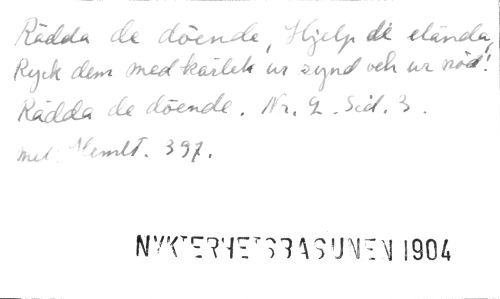 Rädda de döende, Hjelp de elända,
Ryck dem med kärlek ur synd och ur nöd!
Rädda de döende. Nr. 2. Sid. 3.
mel. Hemlt. 397.
NYKTERHETSBASUNEN 1904